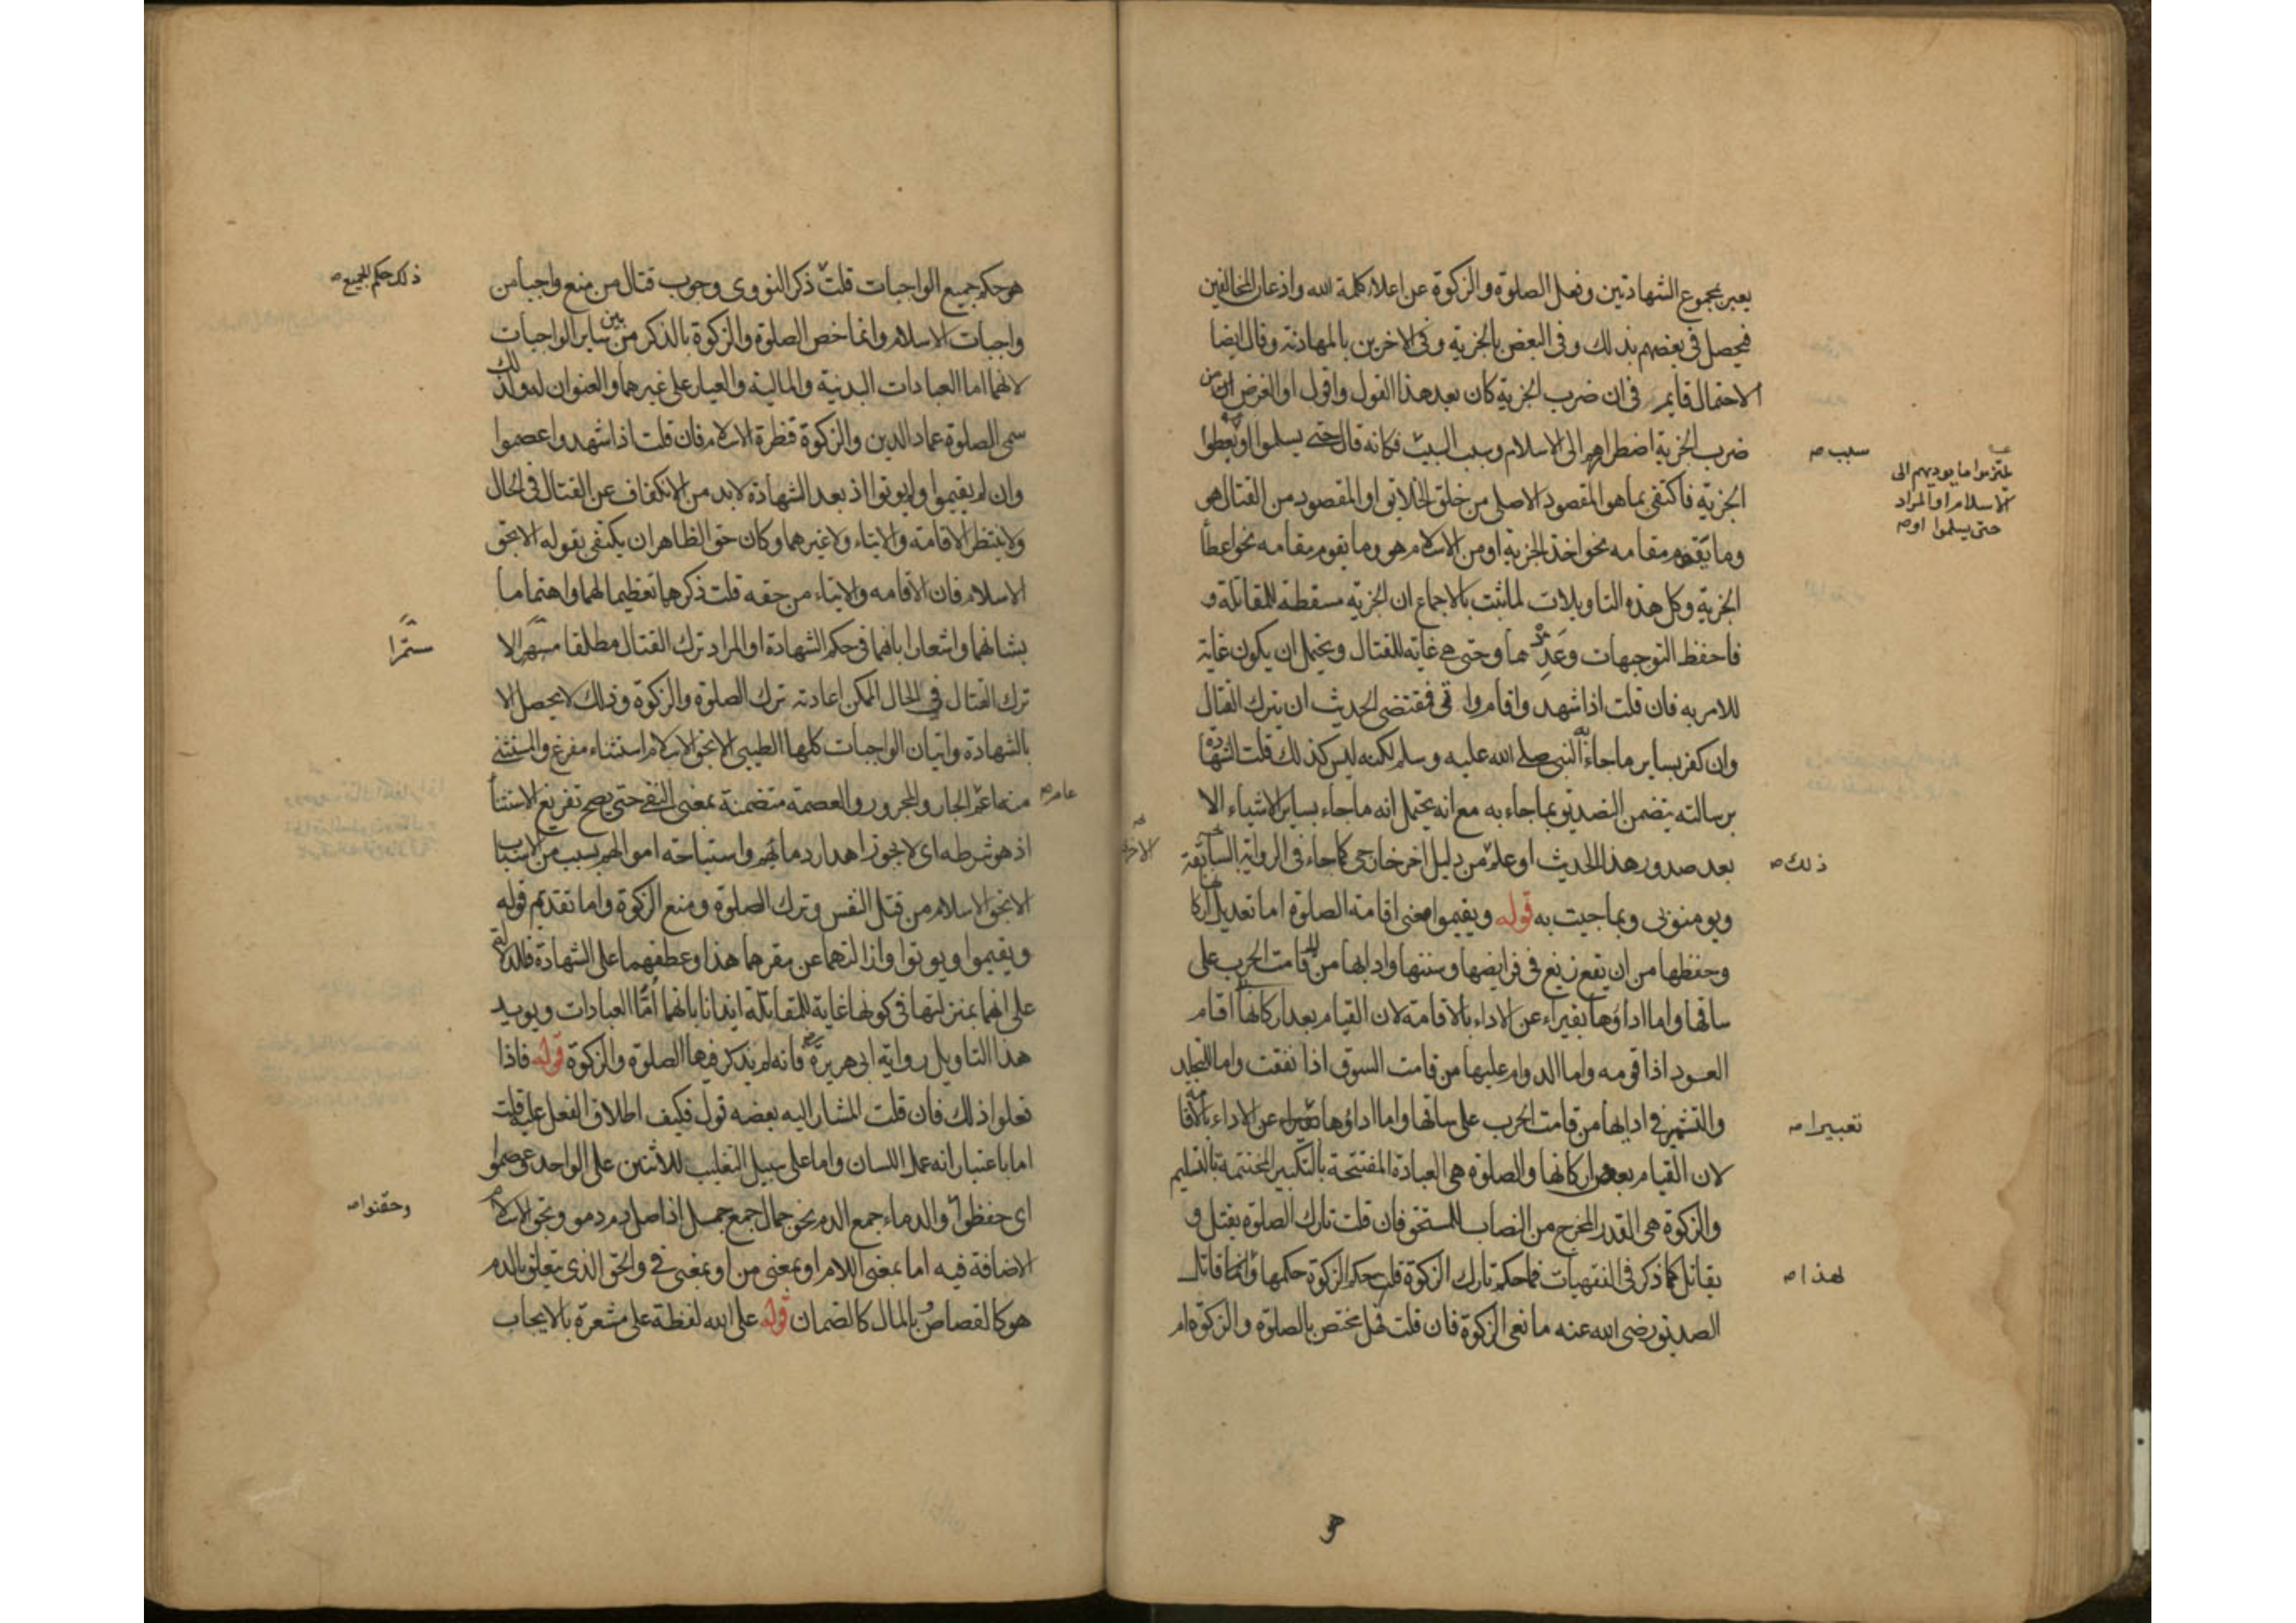 يعبر بمجموع الشهادتين وفعل الصلوة والزكوة عن اعلاء كلمة الله واذعان المخالفين
فيحصل في بعضهم بذلك وفي البعض بالجزية وفي الاخرين بالمهادنة وقال ايضا
الاحتمال قايم في ان ضرب الجزية كان بعد هذا القول واقول او الغرض من
ضرب الجزية اضطرارهم الى الاسلام وسبب السبب فكانه قال حتى يسلموا او يعطوا
الجزية فاكتفى بما هو المقصود الاصلي من خلق الخلايق او المقصود من القتال هو
وما يقوم مقامه نحو اخذ الجزية او من الاسلام هو وما يقوم مقامه نحو اعطا
الجزية وكل هذه التاويلات لما ثبت بالاجماع ان الجزية مسقطة للمقاتلة و
فاحفظ التوجيهات وعدها وحتى هي غاية للقتال ويحتمل ان يكون غاية
للامر به فان قلت اذا شهد واقام واتى فمقتضى الحديث ان يترك القتال
وان كفر بساير ما جاء به النبي صلى الله عليه وسلم لكنه ليس كذلك قلت الشهادة
برسالته يتضمن التصديق بما جاء به مع انه يحتمل انه ما جاء بساير الاشياء الا
بعد صدور هذا الحديث او علم من دليل اخر خارجي كما جاء في الرواية
ويومنوا بي وبما جيت به قوله ويقيموا معنى اقامة الصلوة اما تعديل اركانها
وحفظها من ان يقع زيغ في فرايضها وسننها وادابها من قامت الحرب على
ساقها واما اداؤها تعبيرا عن الاداء بالاقامة لان القيام بعد اركانها اقام
العود اذا قومه واما الدوام عليها من قامت السوق اذا نفقت واما التجلد
والتشمر في ادايها من قامت الحرب على ساقها واما اداؤها عن الاداء بالاقامة
لان القيام بعض اركانها والصلوة هي العبادة المفتتحة بالتكبير المختتمة بالتسليم
والزكوة هي القدر المخرج من النصاب للمستحق فان قلت تارك الصلوة يقتل و
يقاتل كما ذكر في الفقهيات فما حكم تارك الزكوة قلت حكم الزكوة حكمها وانما قاتل
الصديق رضي الله عنه مانعي الزكوة فان قلت فهل يختص بالصلوة والزكوة ام
سبب صه
يلتزموا ما يوديهم الى
الاسلام او المراد
حتى يسلموا او صه
ذلك صه
الاخر
تعبيرا صه
لهذا صه
هو حكم جميع الواجبات قلت ذكر النووي وجوب قتال من منع واجبا من
واجبات الاسلام وانما خص الصلوة والزكوة بالذكر من بين ساير الواجبات
لانهما اما العبادات البدنية والمالية والعيار على غيرهما والعنوان له ولذلك
سمى الصلوة عماد الدين والزكوة قنطرة الاسلام فان قلت اذا شهدوا عصموا
وان لم يقيموا ولم يوتوا اذ بعد الشهادة لابد من الانكفاف عن القتال في الحال
ولا ينتظر الاقامة والايتاء ولا غيرهما وكان حق الظاهر ان يكتفى بقوله الا بحق
الاسلام فان الاقامه والايتاء من حقه قلت ذكرهما تعظيما لهما واهتماما
بشانهما واشعارا بانهما في حكم الشهادة او المراد ترك القتال مطلقا مستمرا لا
ترك القتال في الحال الممكن اعادته بترك الصلوة والزكوة وذلك لا يحصل الا
بالشهادة واتيان الواجبات كلها الطيبي الا بحق الاسلام استثناء مفرغ والمستثنى
منه اعم الجار والمجرور والعصمة متضمنة بمعنى النفي حتى يصح تفريغ الاستثنا
اذ هو شرطه اي لا يجوز اهدار دمائهم واستباحة اموالهم بسبب من الاسباب
الا بحق الاسلام من قتل النفس وترك الصلوة ومنع الزكوة واما تقديم قوله
ويقيموا ويوتوا وازالتهما عن مقرهما هذا وعطفهما على الشهادة فللدلالة
على انهما بمنزلتها في كونها غاية للمقاتلة ايذانا بانهما اما العبادات ويويد
هذا التاويل رواية ابي هريرة فانه لم يذكر فيها الصلوة والزكوة قوله فاذا
فعلوا ذلك فان قلت المشار اليه بعضه قول فكيف اطلاق الفعل عليه قلت
اما باعتبار انه عمل اللسان واما على سبيل التغليب للاثنين على الواحد عصموا
اي حفظوا والدماء جمع الدم نحو جمال جمع جمل اذ اصل دم دمو وبحق الاسلام
الاضافة فيه اما بمعنى اللام او بمعنى من او بمعنى في والحق الذي يتعلق بالدم
هو كالقصاص وبالمال كالضمان قوله على الله لفظة على مشعرة بالايجاب
ذلك حكم الجميع صه
ستمرا
عام صه
وحقنوا صه